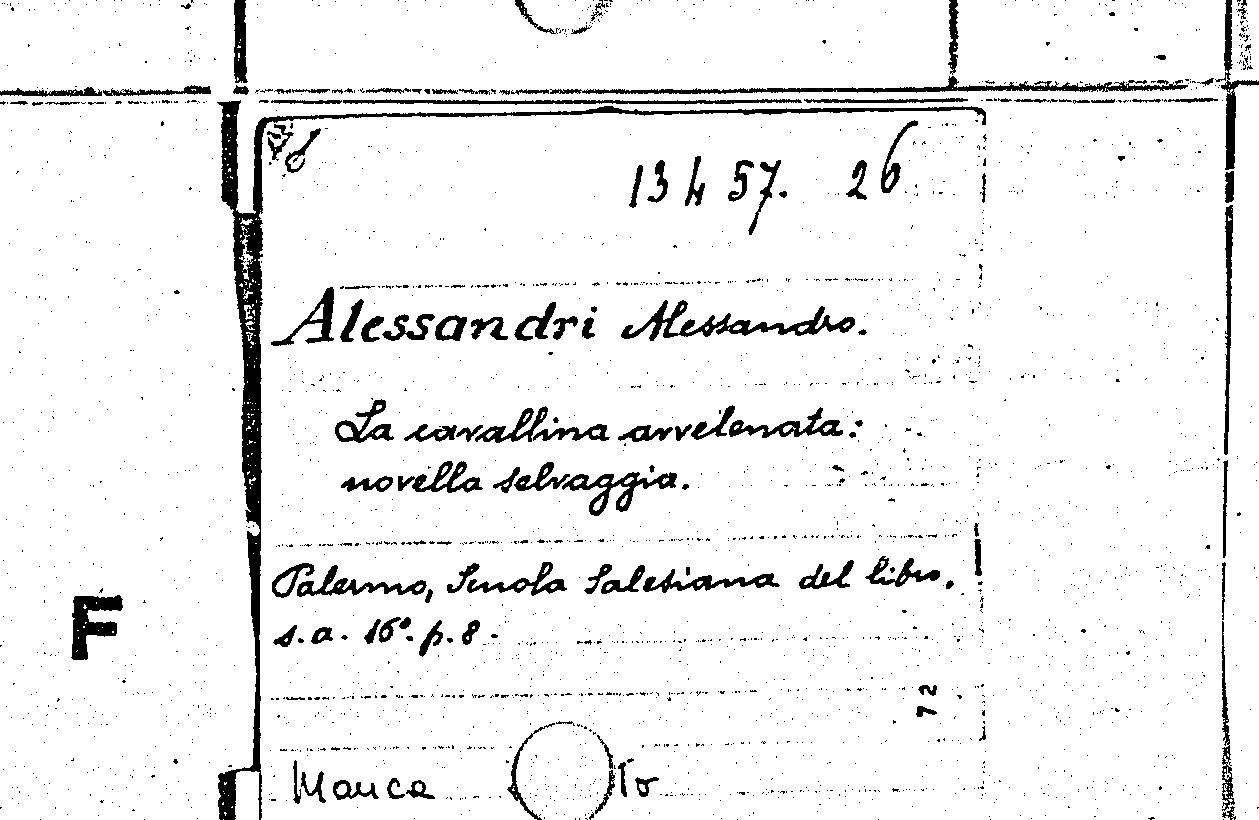 13457. 26
Alessandri Alessandro.
La cavallina avvelenata:
novella selvaggia.
Palermo, Scuola Salesiana del libro,
s.a. 16°. p. 8.
F
72
Manca To